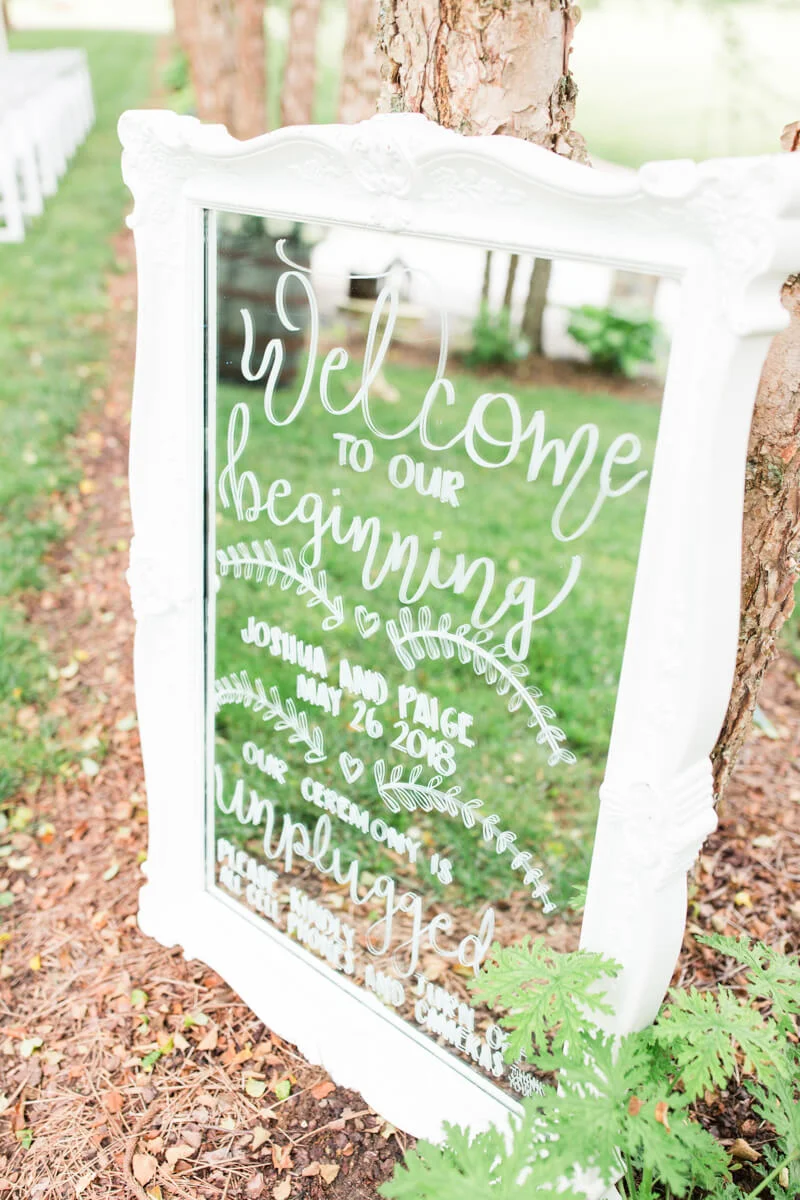 Welcome
TO OUR
beginning
JOSHUA AND PAIGE
MAY 26 2018
OUR CEREMONY IS
unplugged
PLEASE KINDLY TURN OFF
ALL CELL PHONES AND CAMERAS
THANK YOU